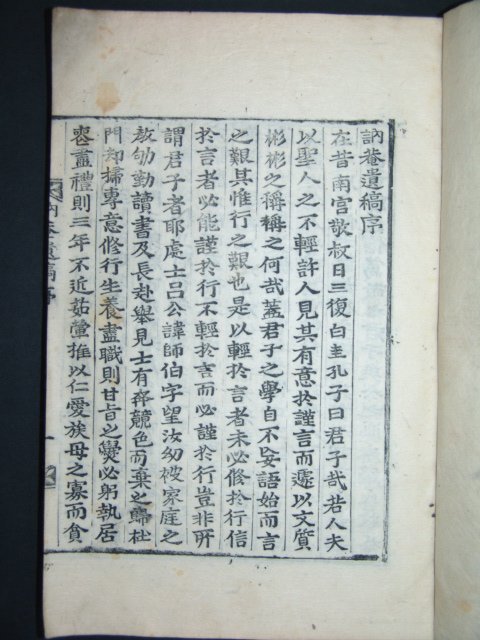 訥菴遺稿序
在昔南宫敬叔日三復白圭孔子曰君子哉若人夫
以聖人之不輕許人見其有意於謹言而遽以文質
彬彬之稱稱之何哉蓋君子之學自不妄語始而言
之艱其惟行之艱也是以輕於言者未必修於行信
於言者必能謹於行不輕於言而必謹於行豈非所
謂君子者耶處士吕公諱師伯字望汝幼被家庭之
敎劬勤讀書及長赴舉見士有奔競色而棄之歸杜
門却掃專意修行生養盡職則甘旨之爕必躬執居
喪盡禮則三年不近茹葷推以仁愛族母之寡而貪
訥菴遺稿序
一